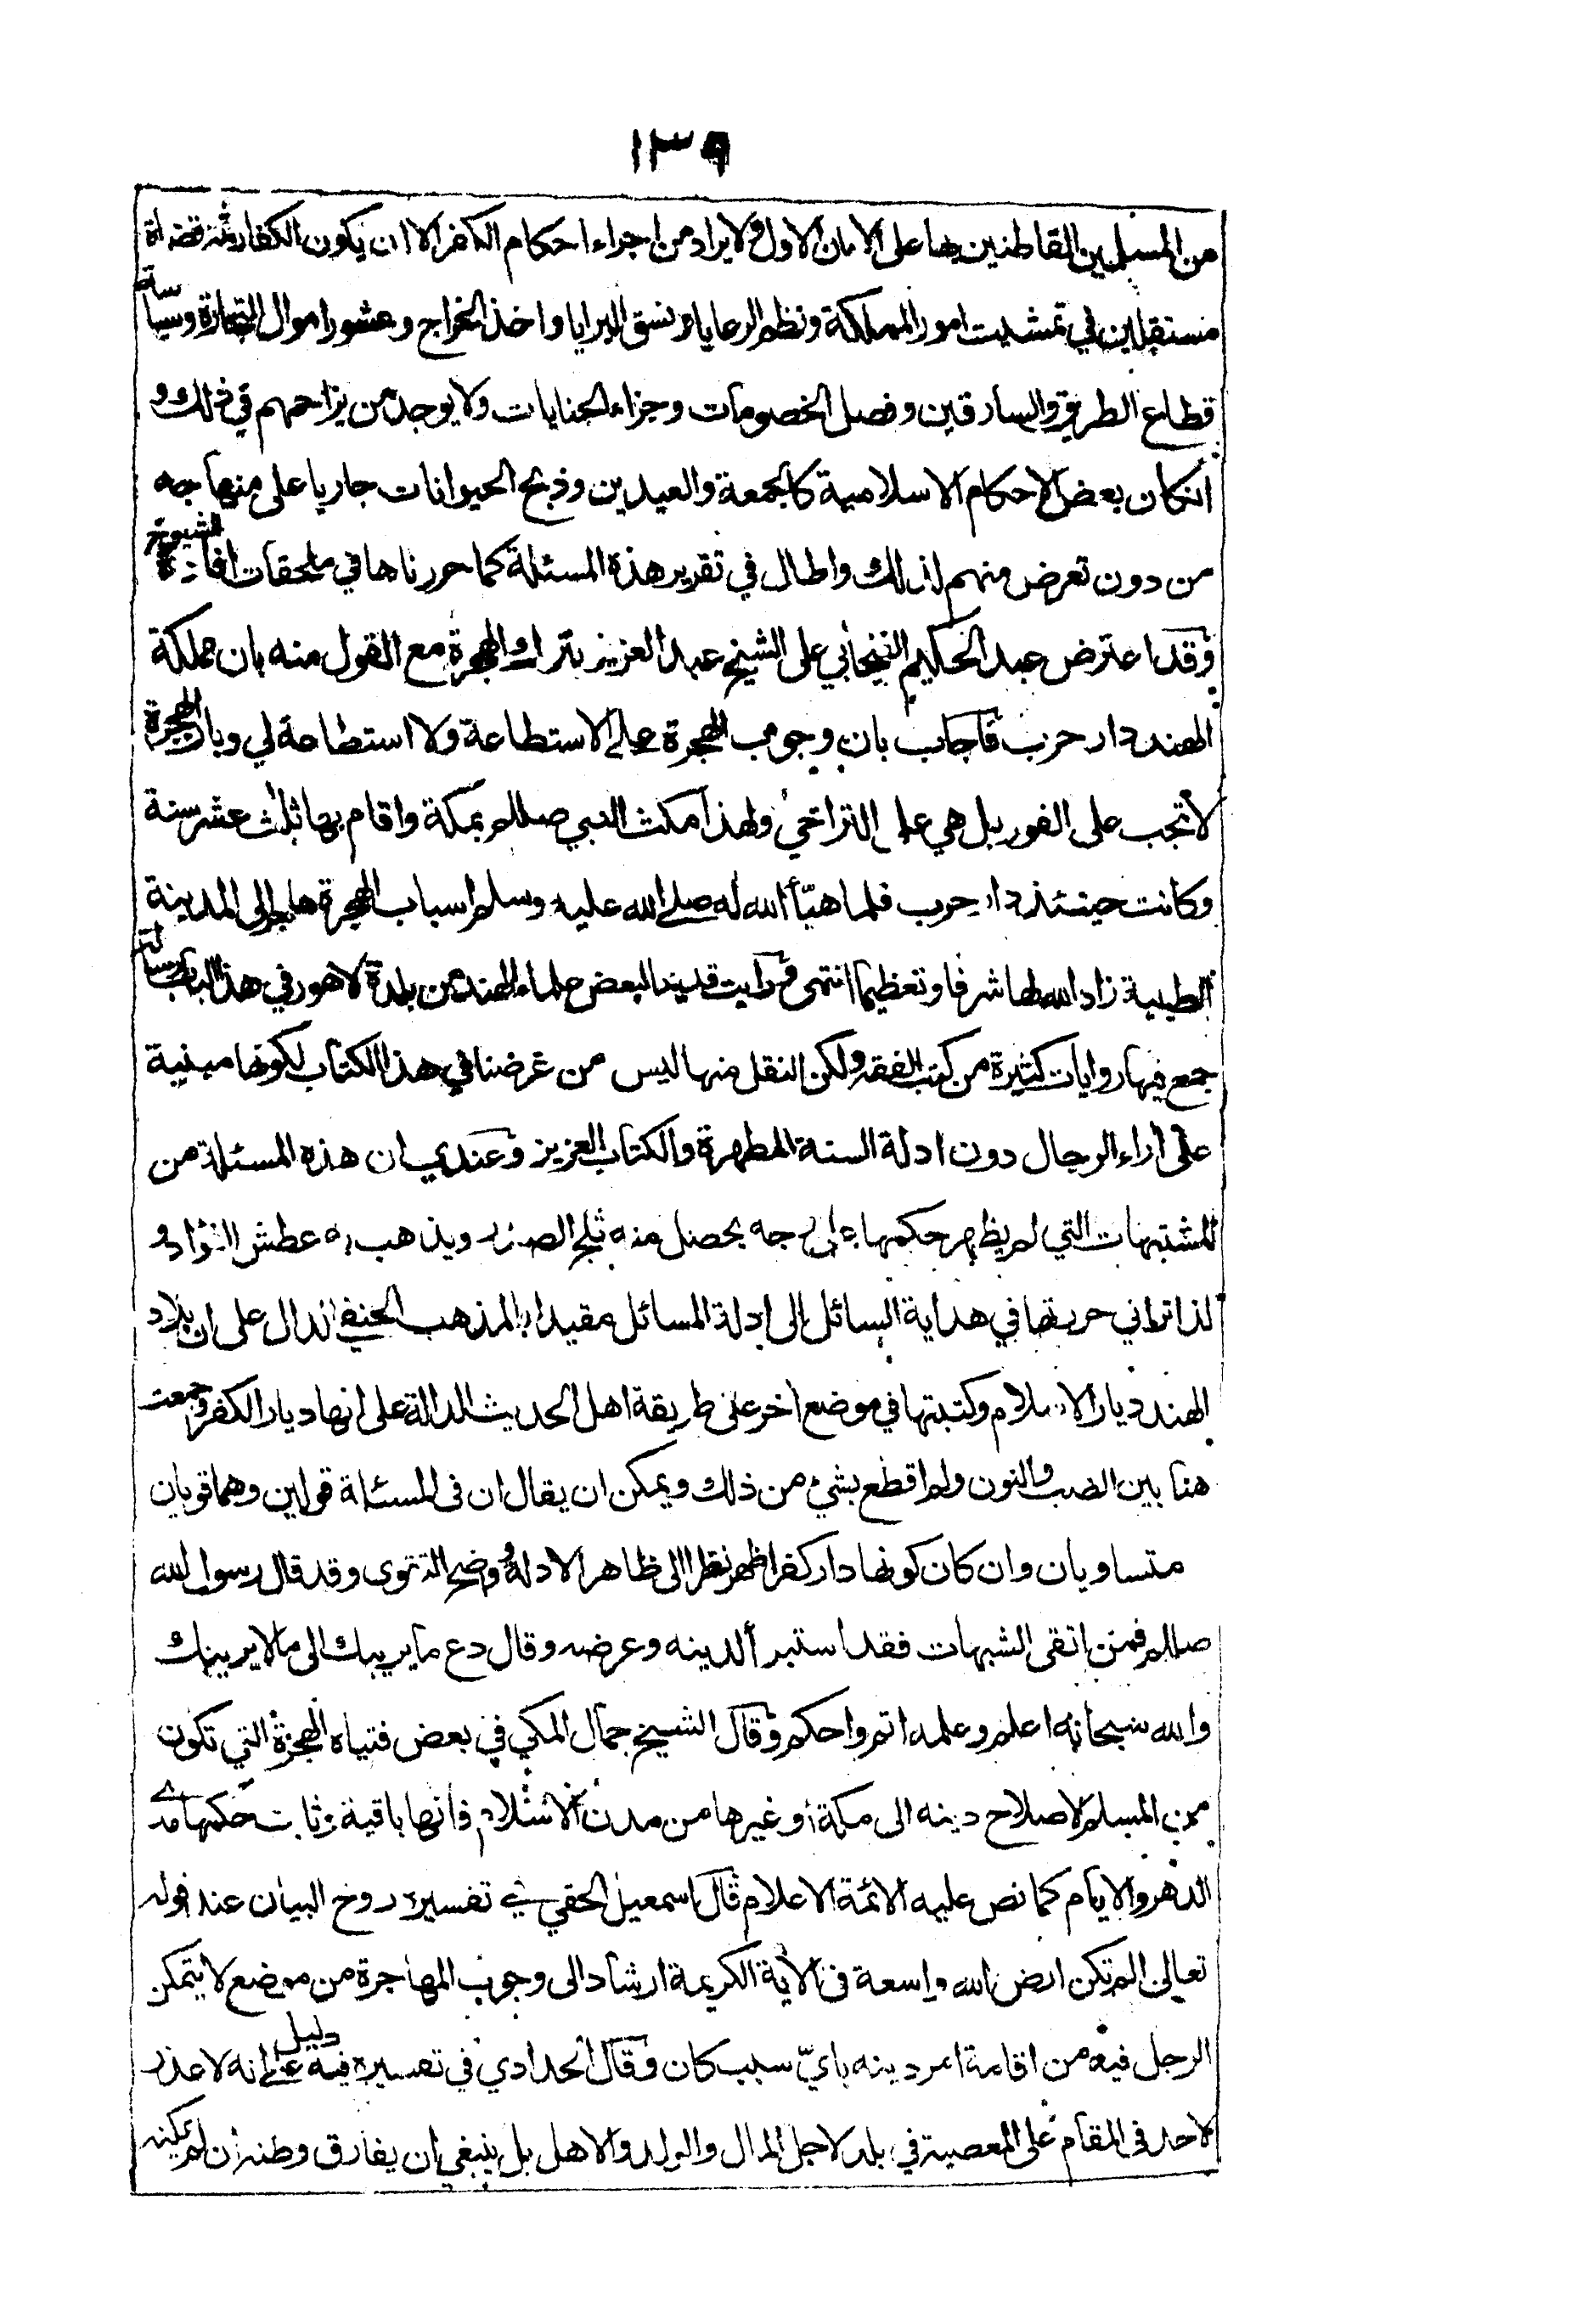 ١٣٩
من المسلمين القاطنين بها على الامان الاول ولا يراد من اجراء احكام الكفر الا ان يكون الكفار قضاة
مستقلين في تمشيت امور المملكة ونظم الرعايا ونسق البرايا واخذ الخراج وعشور اموال التجارة وسياسة
قطاع الطريق والسارقين وفصل الخصومات وجزاء الجنايات ولا يوجد من يزاحمهم في ذلك و
انكان بعض الاحكام الاسلامية كالجمعة والعيدين وذبح الحيوانات جاريا على منهاجه
من دون تعرض منهم لذلك واطال في تقرير هذه المسئلة كما حررناها في ملحقات افادة الشيوخ
وقد اعترض عبد الحكيم الفنجابي على الشيخ عبد العزيز بترك الهجرة مع القول منه بان مملكة
الهند دار حرب فاجاب بان وجوب الهجرة على الاستطاعة ولا استطاعة لي وبان الهجرة
لا تجب على الفور بل هي على التراخي ولهذا مكث النبي صللم بمكة واقام بها ثلث عشر سنة
وكانت حينئذ دار حرب فلما هيّأ الله له صلے الله عليه وسلم اسباب الهجرة هاجر الى المدينة
الطيبة زاد الله لها شرفا وتعظيما انتهى ورايت قديما لبعض علماء الهند من بلدة لاهور في هذا الباب رسالة
جمع فيها روايات كثيرة من كتب الفقه ولكن النقل منها ليس من غرضنا في هذا الكتاب لكونها مبنية
على أراء الرجال دون ادلة السنة المطهرة والكتاب العزيز وعندي ان هذه المسئلة من
المشتبهات التي لم يظهر حكمها على وجه يحصل منه ثلج الصدر ويذهب به عطش الفؤاد و
لذا تراني حررتها في هداية السائل الى ادلة المسائل مقيدا بالمذهب الحنفي الدال على ان بلاد
الهند ديار الاسلام وكتبتها في موضع أخر على طريقة اهل الحديث الدالة على انها ديار الكفر وجمعت
هنا بين الضب والنون ولم اقطع بشئ من ذلك ويمكن ان يقال ان فى المسئلة قولين وهما قويان
متساويان وان كان كونها دار كفر اظهر نظرا الى ظاهر الادلة وواضح التقوى وقد قال رسول الله
صللم فمن اتقى الشبهات فقد استبرأ لدينه وعرضه وقال دع ما يريبك الى ما لا يريبك
والله سبحانه اعلم وعلمه اتم واحكم وقال الشيخ جمال المكي في بعض فتياه الهجرة التي تكون
من المسلم لاصلاح دينه الى مكة او غيرها من مدن الاسلام فانها باقية وثابت حكمها مدے
الدهر والايام كما نص عليه الائمة الاعلام قال اسمعيل الحقي في تفسيره روح البيان عند قوله
تعالى الم تكن ارض الله واسعة فى الأية الكريمة ارشاد الى وجوب المهاجرة من موضع لا يتمكن
الرجل فيه من اقامة امر دينه بايّ سبب كان وقال الحدادي في تفسيره فيه دليل على انه لا عذر
لاحد فى المقام على المعصية في بلد لاجل المال والولد والاهل بل ينبغي ان يفارق وطنه ان لم يمكنه